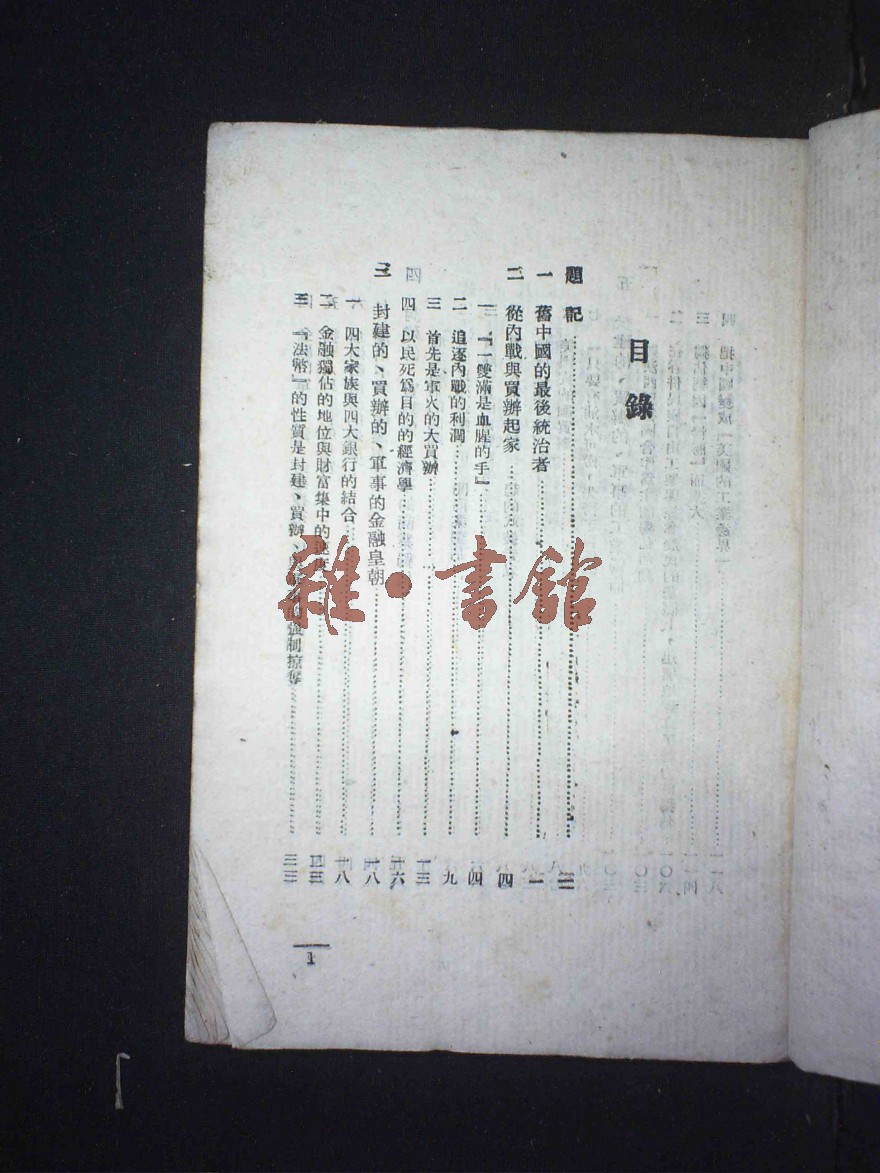 目錄
題記
一 舊中國的最後統治者 一
二 從內戰與買辦起家 四
一 『一雙滿是血腥的手』 四
二 追逐內戰的利潤 九
三 首先是軍火的大買辦 一三
四 以民死爲目的的經濟學 一六
三 封建的、買辦的、軍事的金融皇朝 一八
一 四大家族與四大銀行的結合 一八
二 金融獨佔的地位與財富集中的速度
三 『法幣』的性質是封建、買辦、 強制掠奪 三三
1
雜·書館